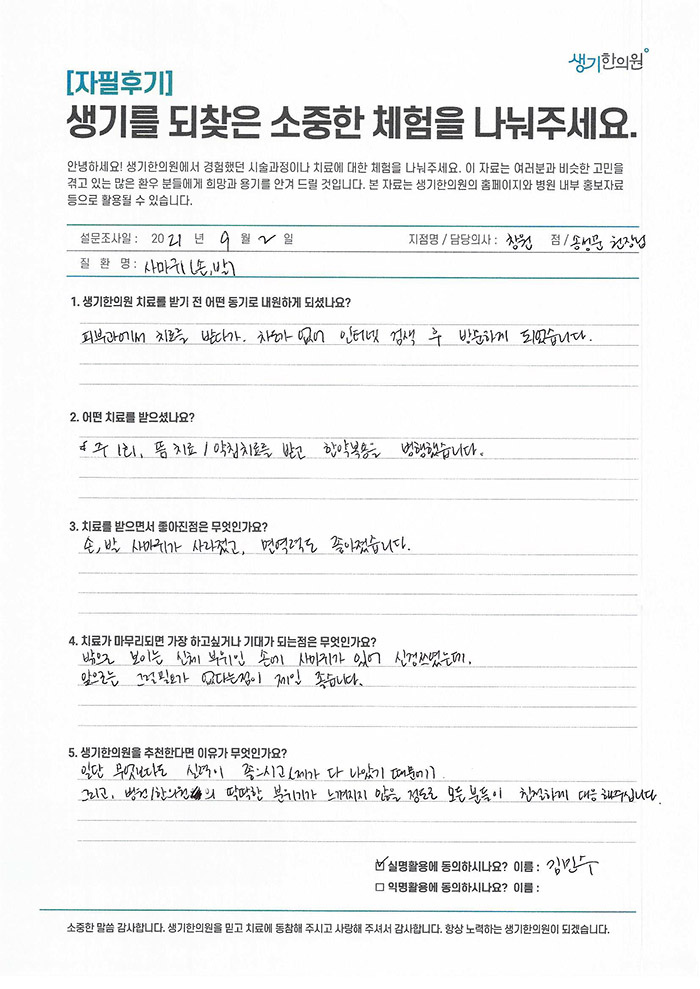 생기한의원
[자필후기]
생기를 되찾은 소중한 체험을 나눠주세요.
안녕하세요! 생기한의원에서 경험했던 시술과정이나 치료에 대한 체험을 나눠주세요. 이 자료는 여러분과 비슷한 고민을
겪고 있는 많은 환우 분들에게 희망과 용기를 안겨 드릴 것입니다. 본 자료는 생기한의원의 홈페이지와 병원 내부 홍보자료
등으로 활용될 수 있습니다.
설문조사일 : 2021 년 9 월 2 일 지점명 / 담당의사 : 창원 점 / 송성문 원장님
질 환 명 : 사마귀(손,발)
1. 생기한의원 치료를 받기 전 어떤 동기로 내원하게 되셨나요?
피부과에서 치료를 받다가. 차도가 없어 인터넷 검색 후 방문하게 되었습니다.
2. 어떤 치료를 받으셨나요?
주 1회, 뜸치료 / 약침치료를 받고 한약복용을 병행했습니다.
3. 치료를 받으면서 좋아진점은 무엇인가요?
손, 발 사마귀가 사라졌고, 면역력도 좋아졌습니다.
4. 치료가 마무리되면 가장 하고싶거나 기대가 되는점은 무엇인가요?
밖으로 보이는 신체 부위인 손에 사마귀가 있어 신경쓰였는데,
앞으로는 그럴필요가 없다는점이 제일 좋습니다.
5. 생기한의원을 추천한다면 이유가 무엇인가요?
일단 무엇보다도 실력이 좋으시고 (제가 다 나았기 때문에)
그리고, 병원/한의원의 딱딱한 분위기가 느껴지지 않을 정도로 모든분들이 친절하게 대응해주십니다.
실명활용에 동의하시나요? 이름 : 김민수
익명활용에 동의하시나요? 이름 :
소중한 말씀 감사합니다. 생기한의원을 믿고 치료에 동참해 주시고 사랑해 주셔서 감사합니다. 항상 노력하는 생기한의원이 되겠습니다.